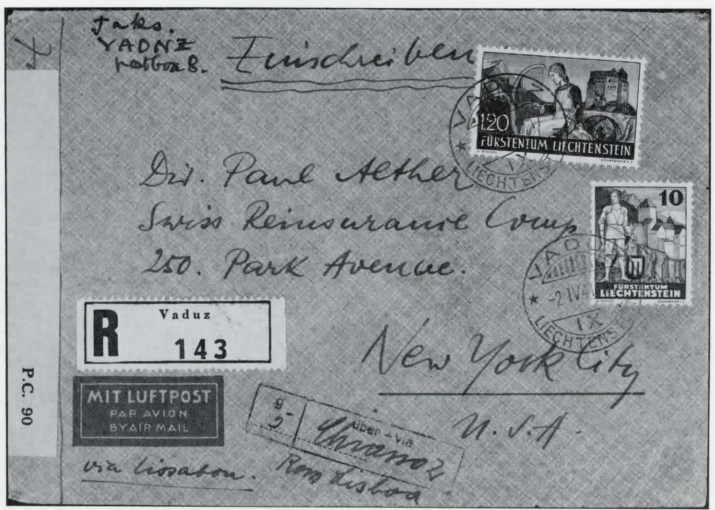 Jaks.
VADUZ
postbox 8.
Einschreiben
VADUZ
LIECHTENSTEIN
1.20
FÜRSTENTUM LIECHTENSTEIN
Dir. Paul Alther
Swiss Reinsurance Comp
250. Park Avenue.
10
FÜRSTENTUM
LIECHTENSTEIN
VADUZ
-2 IV 4
IX
LIECHTENS
R
Vaduz
143
New York City
U.S.A.
P.C. 90
MIT LUFTPOST
PAR AVION
BY AIR MAIL
g
5
über - via
Chiasso 2
Rom Lisboa
via Lissabon.